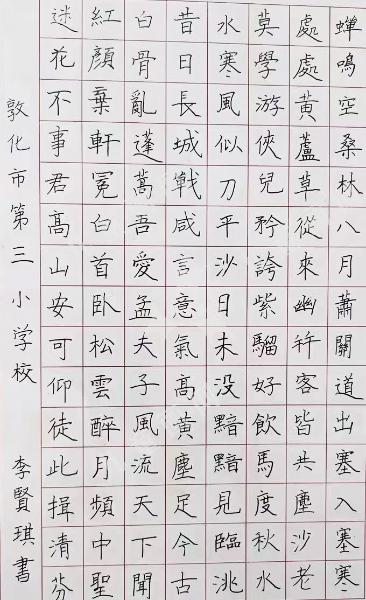 蟬鳴空桑林八月蕭關道出塞入塞寒
處處黃蘆草從來幽幷客皆共塵沙老
莫學游俠兒矜誇紫騮好飲馬度秋水
水寒風似刀平沙日未没黯黯見臨洮
昔日長城戰咸言意氣高黃塵足今古
白骨亂蓬蒿吾愛孟夫子風流天下聞
紅顏棄軒冕白首臥松雲醉月頻中聖
迷花不事君高山安可仰徒此揖清芬
敦化市第三小学校 李賢琪書